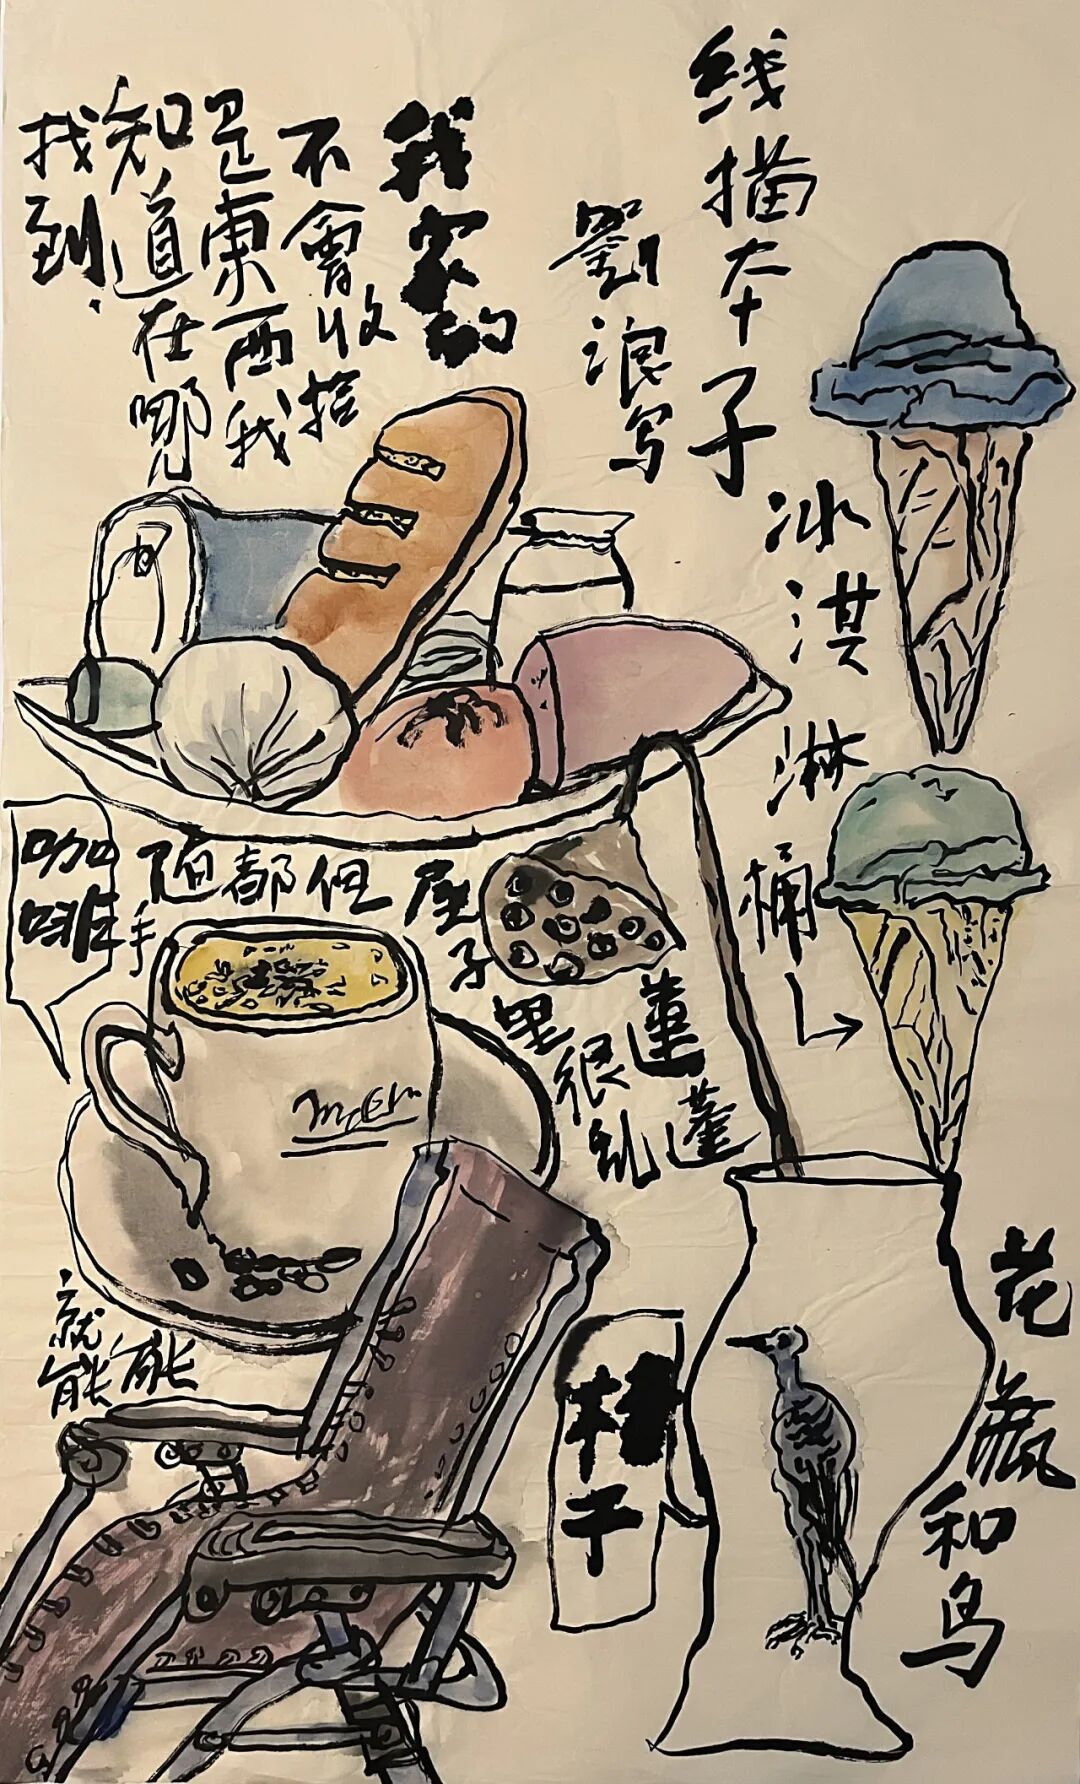 线描本子
劉浪写
我家的
不會收拾
是東西我
知道在哪
找到.
冰淇淋桶
屋子里很乱
但
都
随手
咖啡
蓮蓬
能
就能
椅子
花瓶和鸟